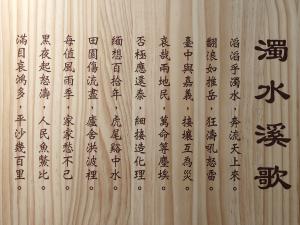 濁水溪歌
滔滔乎濁水，奔流天上來。
翻浪如推岳，狂濤吼怒雷。
臺中與嘉義，接壤互為災。
哀哉兩地民，萬命等塵埃。
否極應達泰，細接造化理。
緬想百拾年，虎尾谿中水。
田園傷流盡，廬舍洪波裡。
每值風雨季，家家愁不已。
黑夜起怒濤，人民魚鱉比。
滿目哀鴻多，平沙幾百里。